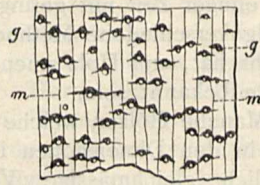 g g
m m